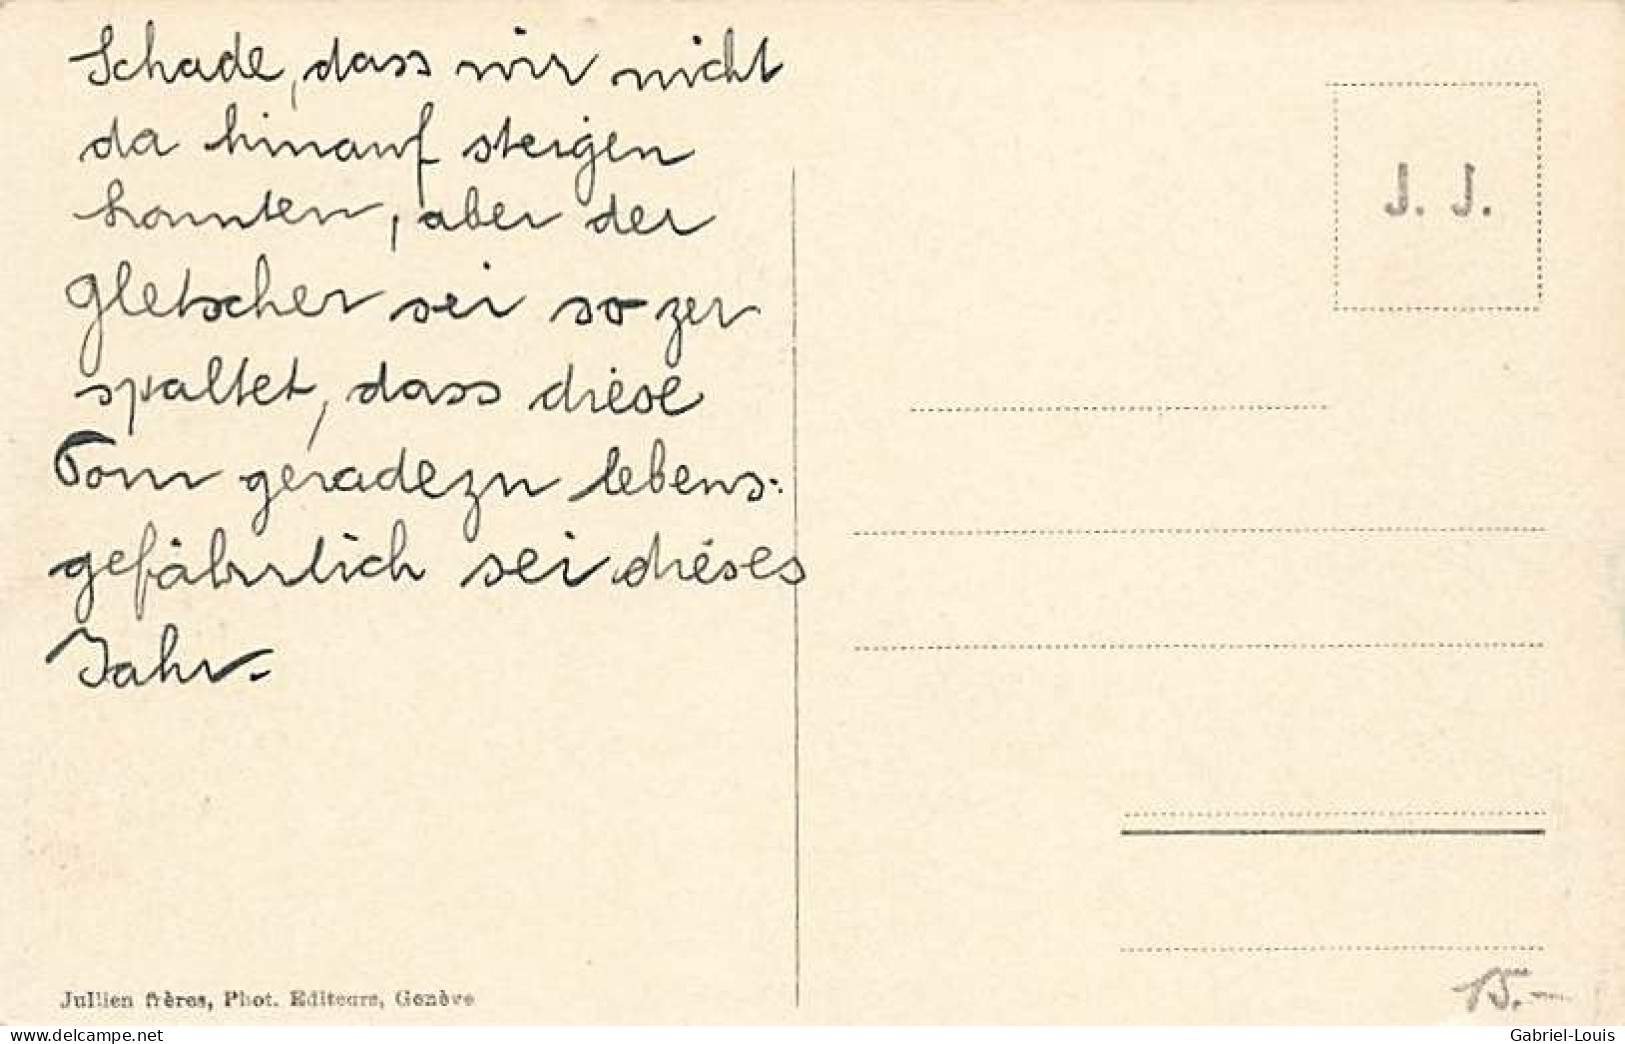 Schade, dass wir nicht
da hinauf steigen
konnten, aber der
Gletscher sei so zer
spaltet, dass diese
Tour geradezu lebens-
gefährlich sei dieses
Jahr.
J. J.
Jullien frères, Phot. Editeurs, Genève
15.-
delcampe.net
Gabriel-Louis